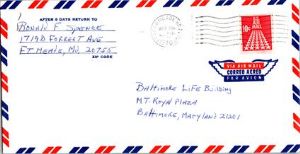 AFTER 5 DAYS RETURN TO
RONALD F
1719D FORREST AVE
FT. MEADE, MD. 20755
ZIP CODE
10c
VIA AIR MAIL
CORREO AEREO
PAR AVION
BALTIMORE LIFE BUILDING
MT. ROYAL PLAZA
BALTIMORE, MARYLAND 21201